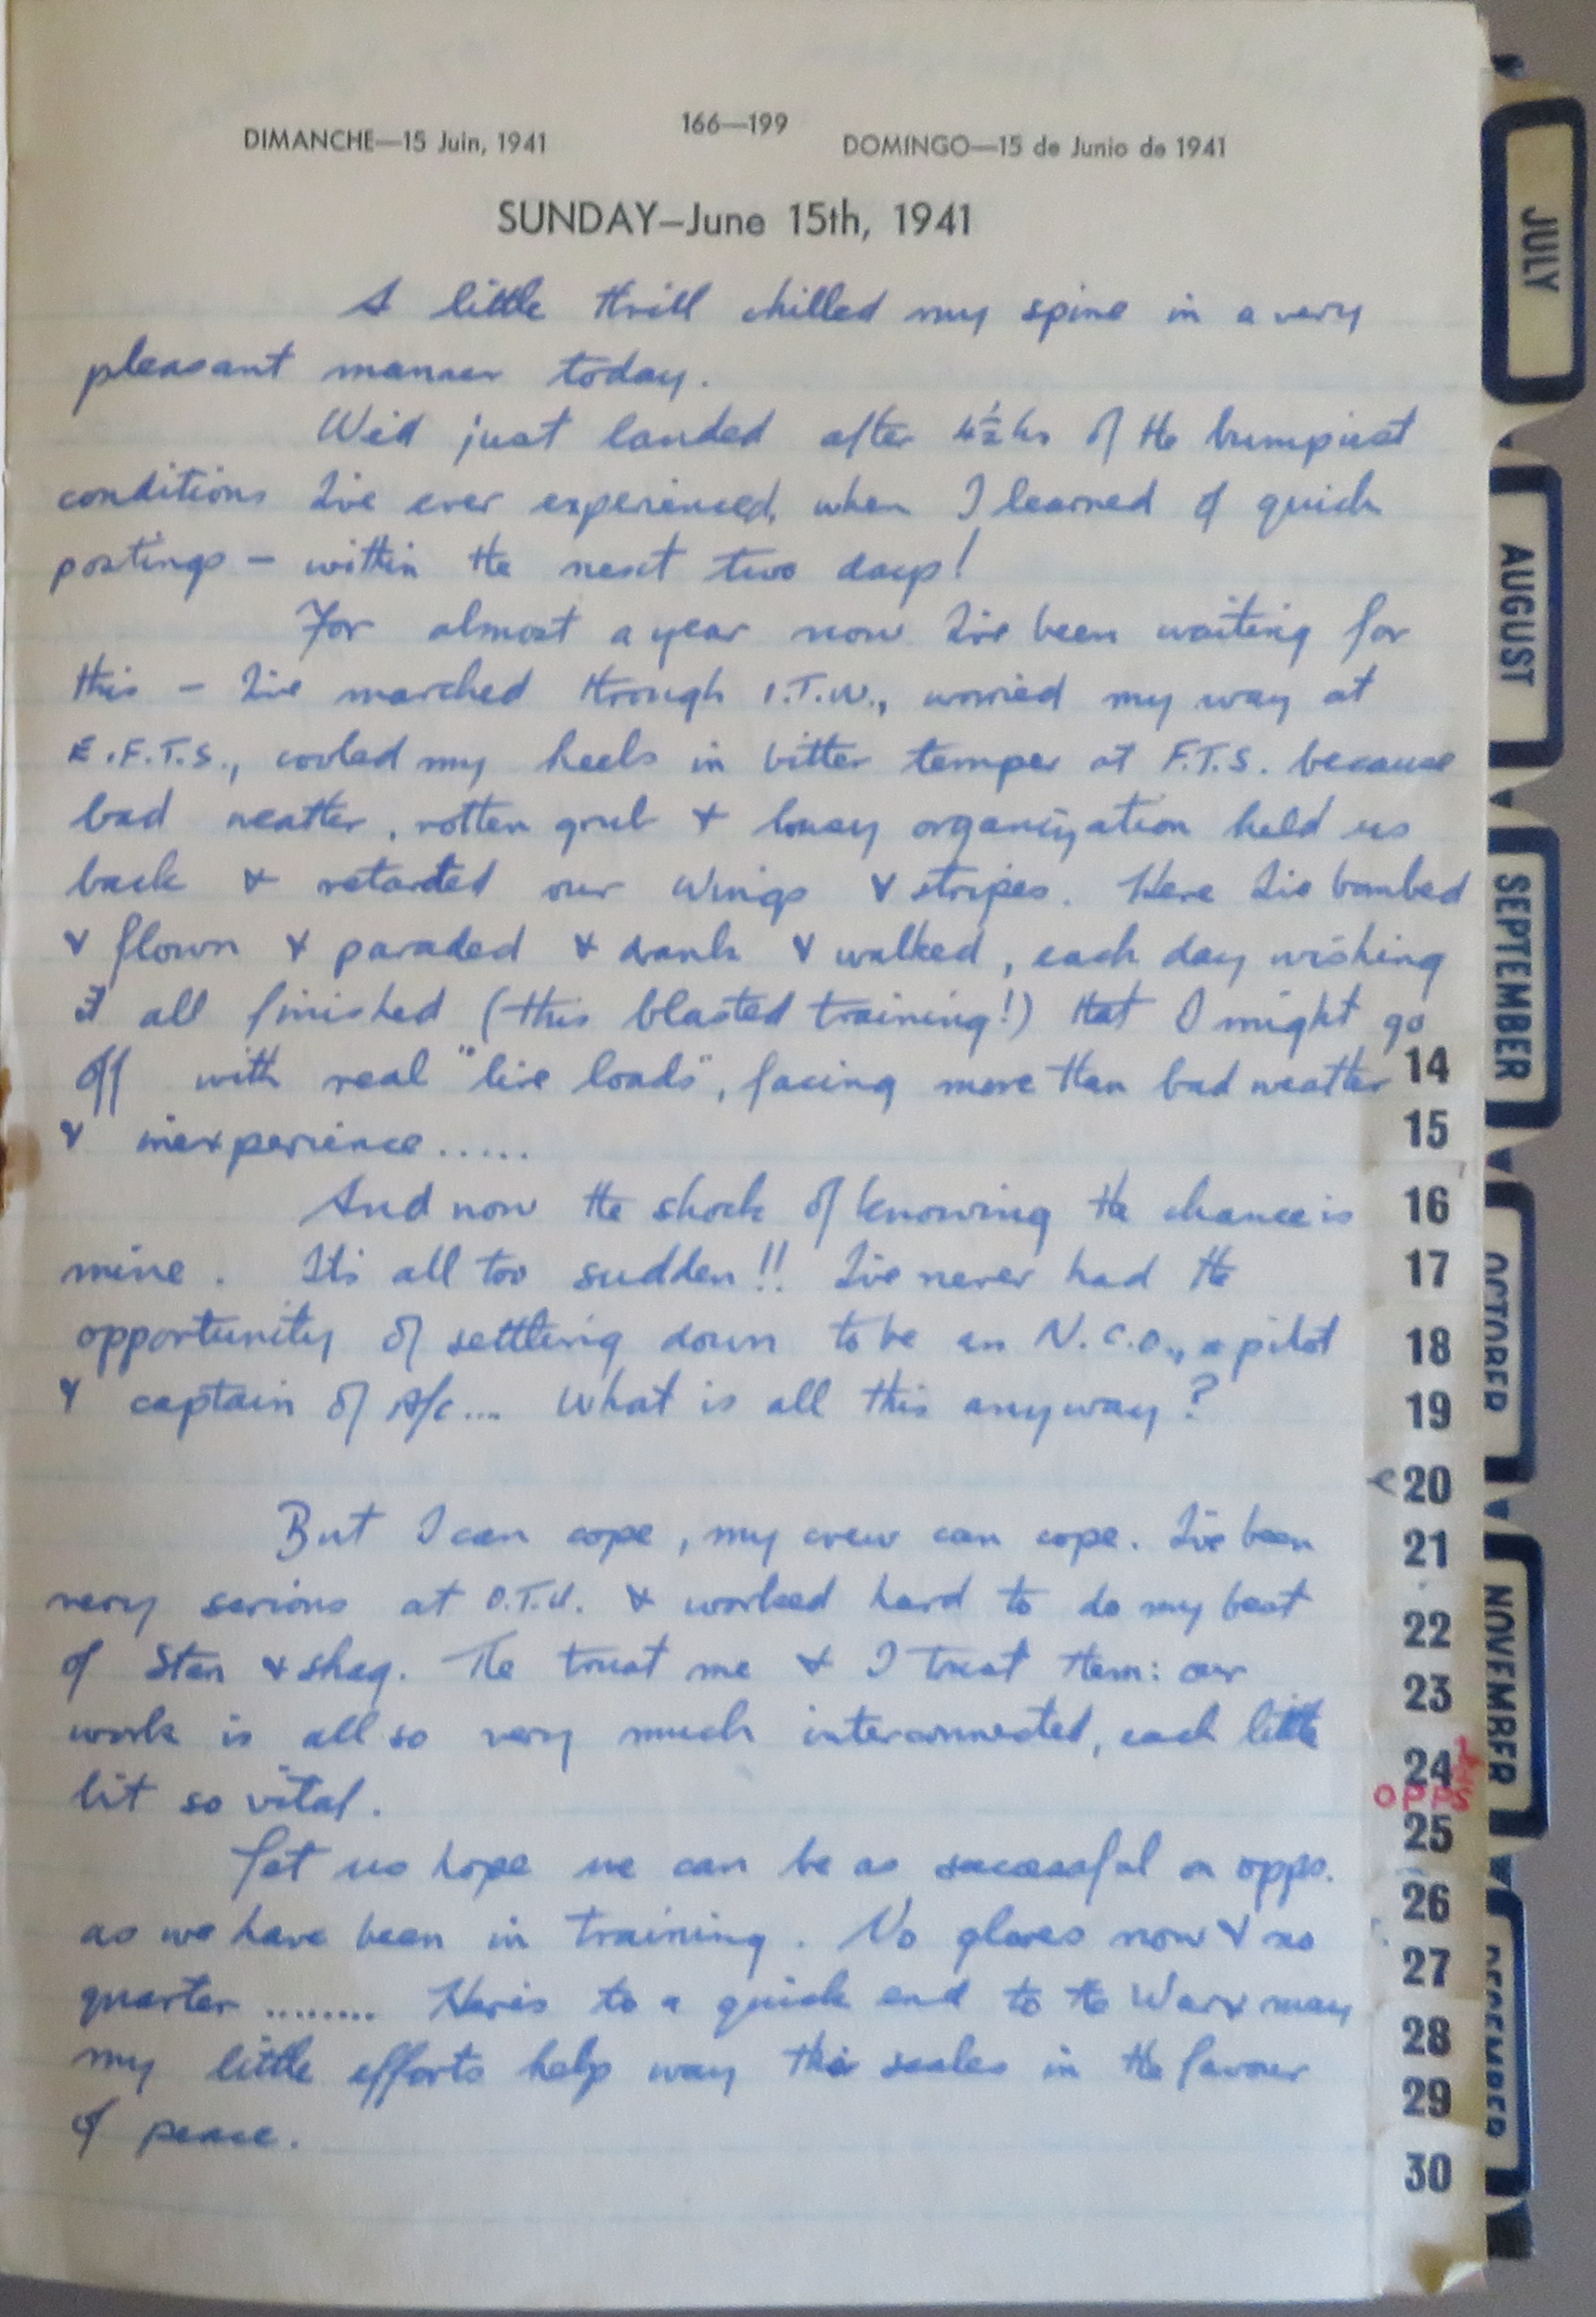 166—199
DIMANCHE—15 Juin, 1941
DOMINGO—15 de Junio de 1941
SUNDAY—June 15th, 1941
A little thrill chilled my spine in a very
pleasant manner today.
We'd just landed after 4½ hrs of the bumpiest
conditions I've ever experienced, when I learned of quick
postings – within the next two days!
For almost a year now I've been waiting for
this – I've marched through I.T.W., worried my way at
E.F.T.S., cooled my heels in bitter temper at F.T.S. because
bad weather, rotten grub & lousy organization held us
back & retarded our Wings & stripes. Here I've bombed
& flown & paraded & drank & walked, each day wishing
it all finished (this blasted training!) that I might go
off with real "live loads", facing more than bad weather
& inexperience.....
And now the shock of knowing the chance is
mine. It's all too sudden!! I've never had the
opportunity of settling down to be an N.C.O., a pilot
& captain of A/c.... What is all this anyway?
But I can cope, my crew can cope. I've been
very serious at O.T.U. & worked hard to do my best
of Stan & Shag. The trust me & I trust them: our
work is all so very much interconnected, each little
bit so vital.
Let us hope we can be as successful on opps.
as we have been in training. No gloves now & no
quarter ......... Here's to a quick end to the War & may
my little efforts help way the scales in the favour
of peace.
14
15
16
17
18
19
20
21
22
23
24
OPPS
25
26
27
28
29
30
JULY
AUGUST
SEPTEMBER
OCTOBER
NOVEMBER
DECEMBER